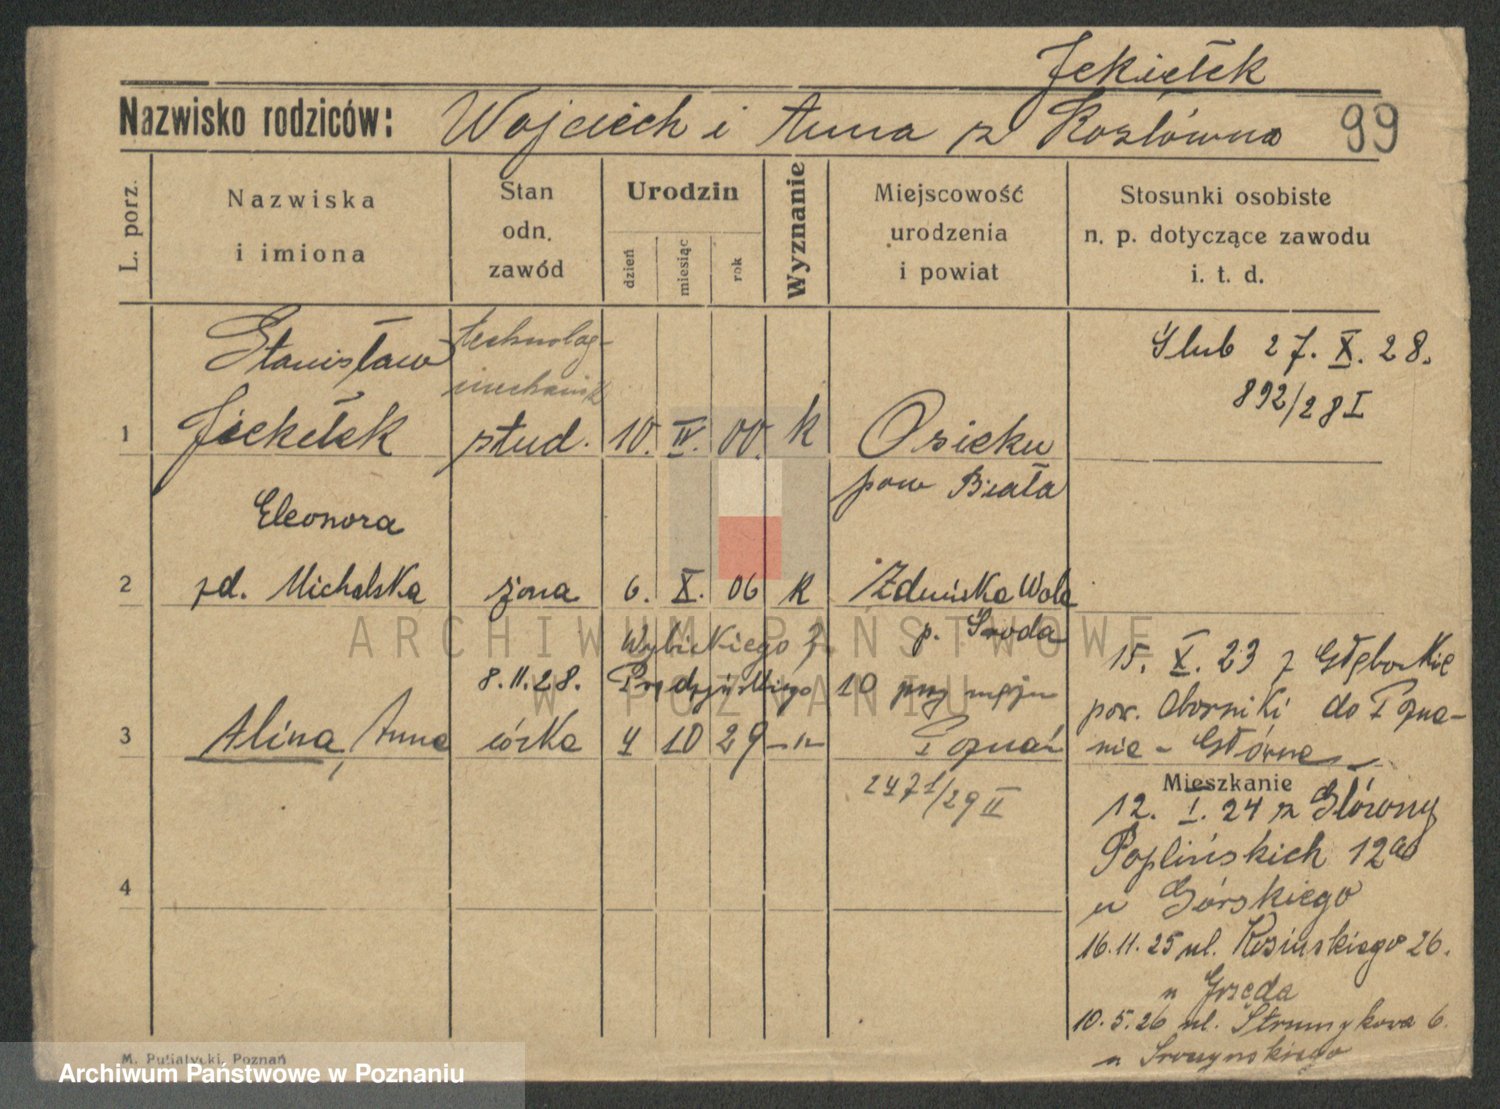 Jekiełek
Nazwisko rodziców: Wojciech i Anna z Kozłówna 99
L. porz.
Nazwiska
i imiona
Stan
odn.
zawód
Urodzin
dzień
miesiąc
rok
Wyznanie
Miejscowość
urodzenia
i powiat
Stosunki osobiste
n. p. dotyczące zawodu
i. t. d.
Stanisław technolog-
mechanik
Ślub 27. X. 28.
892/28 I
1 Jekiełek stud. 10. IV. 00. k Osieku
pow Biała
Eleonora
2 zd. Michalska żona 6. X. 06 k Zduńska Wola
p. Środa
8.11.28. Wybickiego 7
10 przy mężu
3 Alina, Anna córka 4 10 29 -"- Poznań
2471/29 II
15. X. 23 z
pow. Oborniki do Pozna-
nia - Główna
Mieszkanie
12. I. 24 z Główny
Poplińskich 12a
u Górskiego
16.11.25 ul. Kosińskiego 26.
u Grzęda
10.5.26 ul. Strumykowa 6.
u
4
M. Putiatycki, Poznań
ARCHIWUM PAŃSTWOWE
W POZNANIU
Archiwum Państwowe w Poznaniu